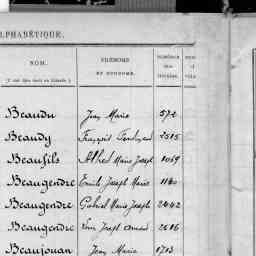 ALPHABÉTIQUE.
NOM. PRÉNOMS ET SURNOMS. NUMÉROS
Beaudu Jean Marie 572
Beaudy François Ferdinand 2515
Beaufils Alfred Marie Joseph 1069
Beaugendre Emile Joseph Marie 1180
Beaugendre Gabriel Marie Joseph 2442
Beaugendre Louis Joseph Armand 2616
Beaujouan Jean Marie 1703